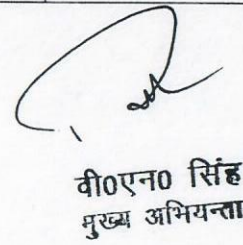 वी0एन0 सिंह
मुख्य अभियन्ता